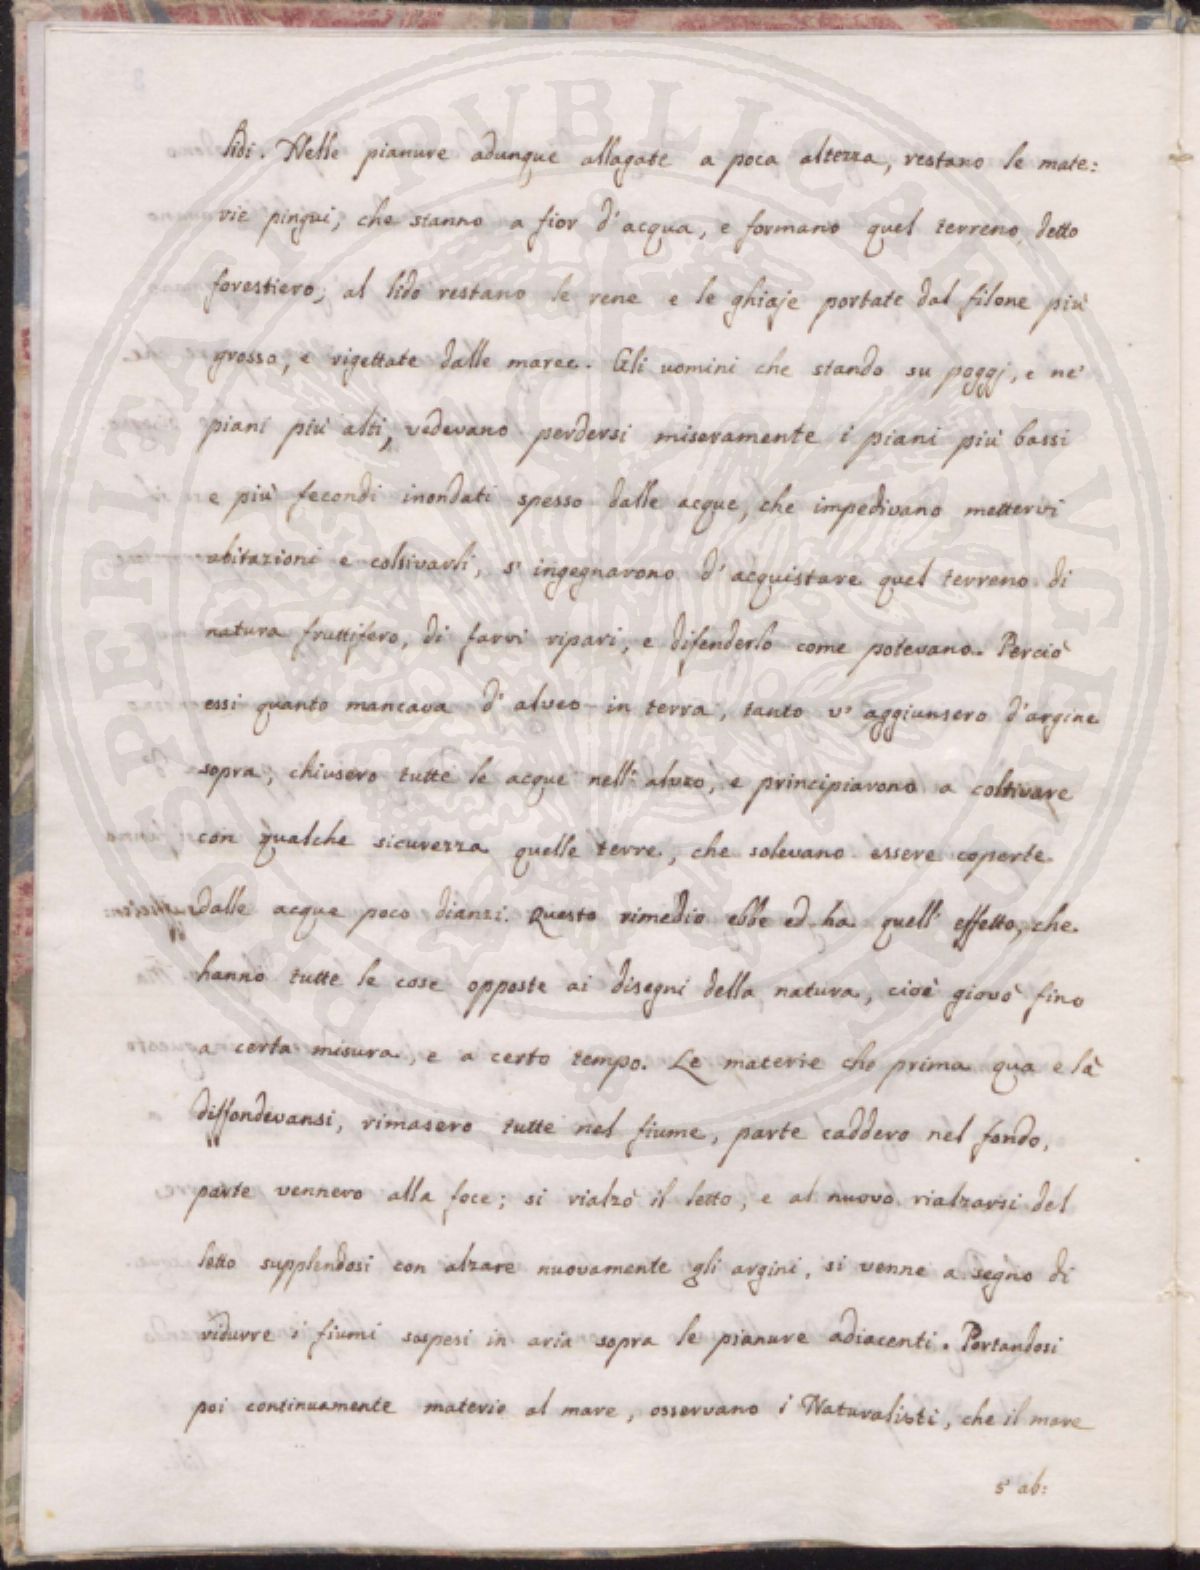 lidi. Nelle pianure adunque allagate a poca altezza, restano le mate:
rie pingui, che stanno a fior d'acqua, e formano quel terreno detto
forestiero; al lido restano le rene e le ghiaje portate dal filone più
grosso, e rigettate dalle maree. Gli uomini che stando su poggj, e ne'
piani più alti, vedevano perdersi miseramente i piani più bassi
e più fecondi inondati spesso dalle acque, che impedivano mettervi
abitazioni e coltivarli, s'ingegnarono d'acquistare quel terreno di
natura fruttifero, di farvi ripari, e difenderlo come potevano. Perciò
essi quanto mancava d'alveo in terra, tanto v'aggiunsero d'argine
sopra, chiusero tutte le acque nell'alveo, e principiarono a coltivare
con qualche sicurezza quelle terre, che solevano essere coperte
dalle acque poco dianzi. Questo rimedio ebbe ed ha quell'effetto, che
hanno tutte le cose opposte ai disegni della natura, cioè giovò fino
a certa misura, e a certo tempo. Le materie che prima qua e là
diffondevansi, rimasero tutte nel fiume, parte caddero nel fondo,
parte vennero alla foce; si rialzò il letto, e al nuovo rialzarsi del
letto supplendosi con alzare nuovamente gli argini, si venne a segno di
ridurre i fiumi sospesi in aria sopra le pianure adiacenti. Portandosi
poi continuamente materie al mare, osservano i Naturalisti, che il mare
s'ab: